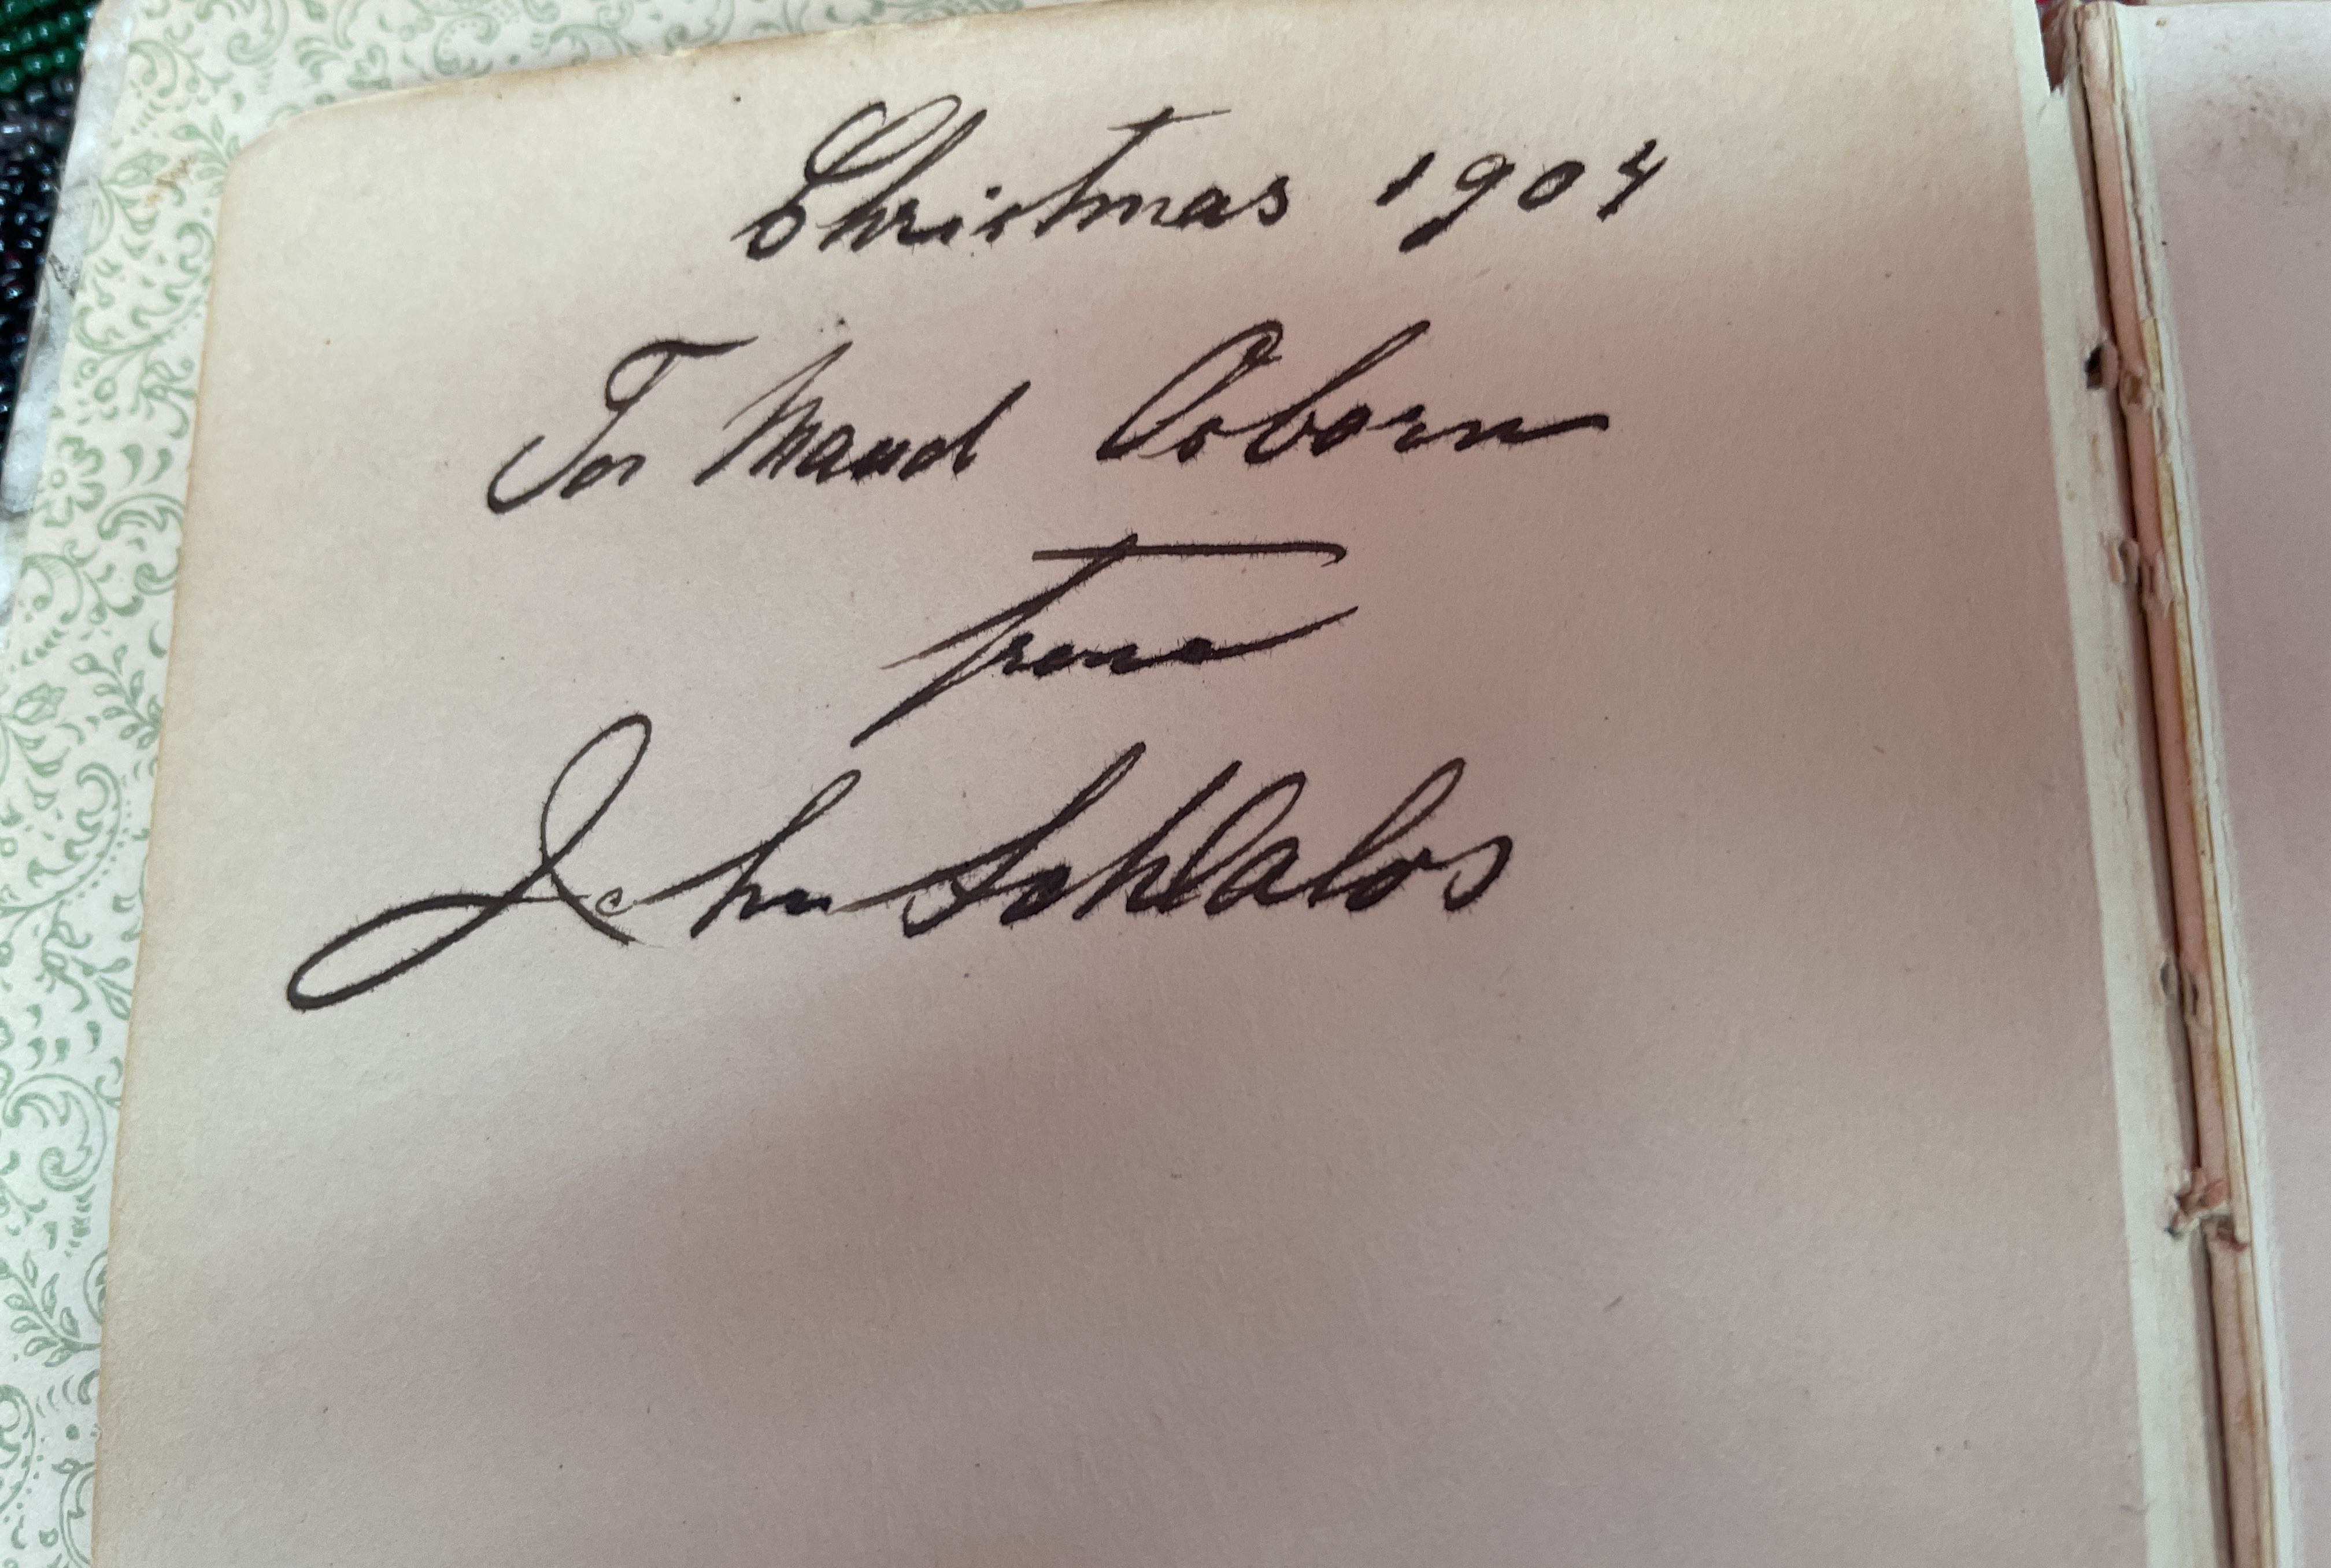 Christmas 1904
For Maud Osborn
From
John Schlalos